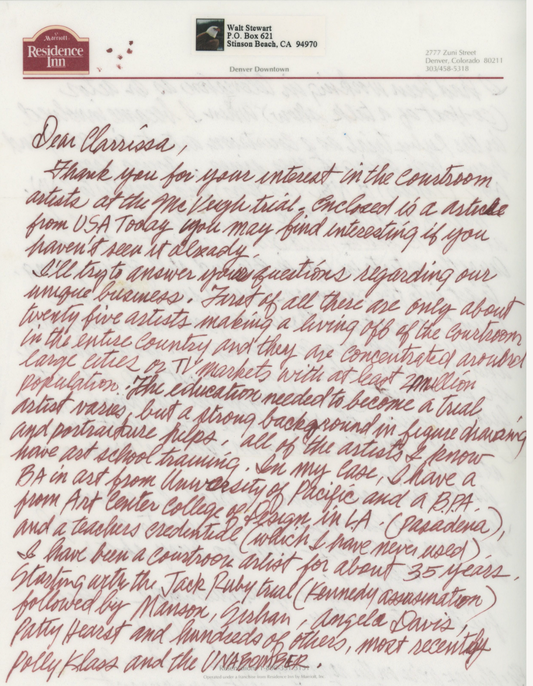 Marriott
Residence
Inn
Walt Stewart
P.O. Box 621
Stinson Beach, CA 94970
Denver Downtown
2777 Zuni Street
Denver, Colorado 80211
303/458-5318
Dear Clarrissa,
Thank you for your interest in the courtroom
artists at the McVeigh trial. Enclosed is a article
from USA Today you may find interesting if you
haven't seen it already.
I'll try to answer your questions regarding our
unique business. First of all there are only about
twenty five artists making a living off of the courtroom
in the entire country and they are concentrated around
large cities or TV markets with at least 2 million
population. The education needed to become a trial
artist varies, but a strong background in figure drawing
and portraiture helps, all of the artists I know
have art school training. In my case, I have a
BA in art from University of Pacific and a B.P.A.
from Art Center College of Design, in LA. (Pasadena),
and a teachers credential (which I have never used).
I have been a courtroom artist for about 35 years.
Starting with the Jack Ruby trial (Kennedy assassination)
followed by Manson, Sirhan, Angela Davis,
Patty Hearst and hundreds of others, most recently
Polly Klass and the UNABOMBER.